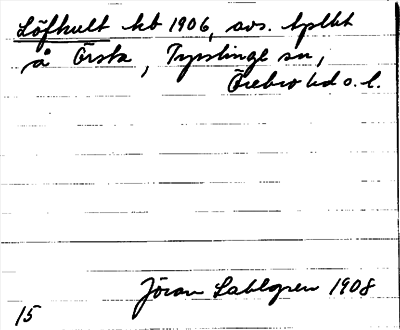 Löfhult hb 1906, avs. tplkt
å Örsta, Tysslinge sn,
Örebro hd o. l.
Jöran Sahlgren 1908
15